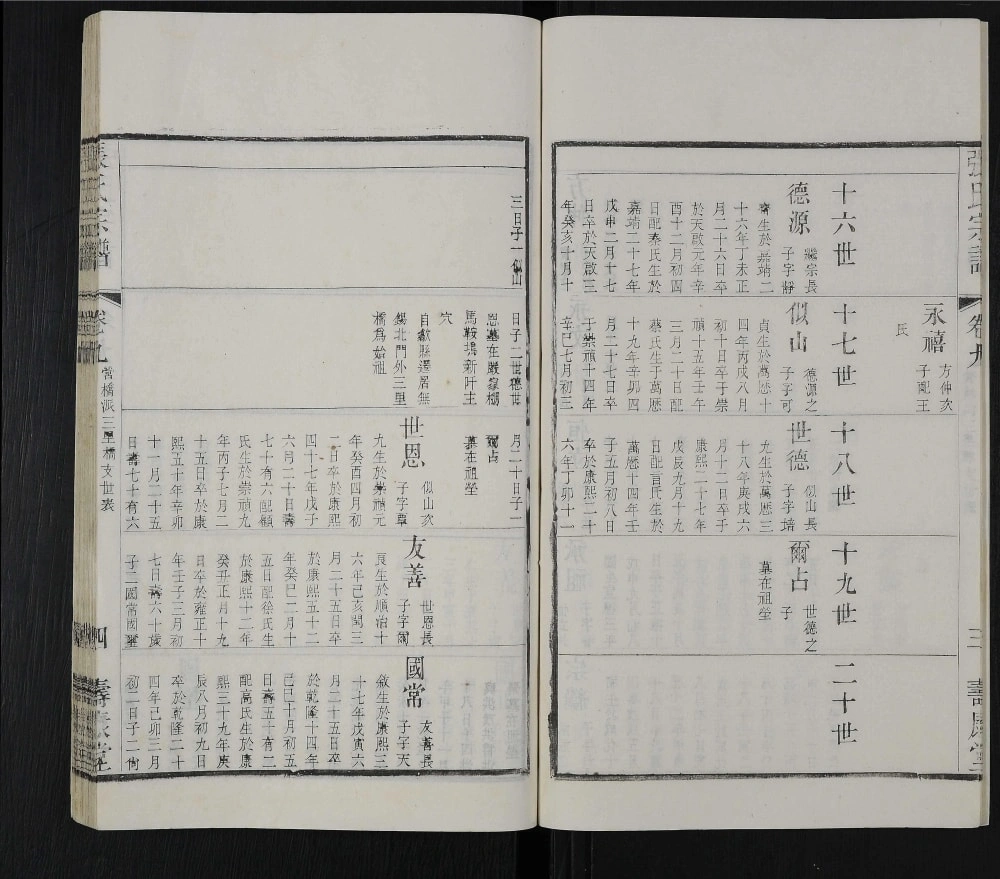 張氏宗譜
卷九
三
壽
堂
十六世
十七世
十八世
十九世
二十世
永禧
方仲次
子配王
氏
德源
繼宗長
子字靜
齋生於嘉靖二
十六年丁未正
月二十六日卒
於天啟元年辛
酉十二月初四
日配秦氏生於
嘉靖二十七年
戊申二月十七
日卒於天啟三
年癸亥十月十
似山
德源之
子字可
貞生於萬曆十
四年丙戌八月
初十日卒于崇
禎十五年壬午
三月二十日配
蔡氏生于萬曆
十九年辛卯四
月二十七日卒
于崇禎十四年
辛巳七月初三
世德
似山長
子字培
九生於萬曆三
十八年庚戌六
月十二日卒于
康熙二十七年
戊辰九月十九
日配言氏生於
萬曆四十年壬
子五月初八日
卒於康熙二十
六年丁卯十一
爾占
世德之
子
墓在祖塋
三日子一似山
日子二世德世
恩墓在嚴家棚
馬鞍塢新阡主
穴
自歙縣遷居無
錫北門外三里
橋爲始祖
月二十日子一
爾占
墓在祖塋
世恩
似山次
子字覃
九生於崇禎元
年癸酉四月初
二日卒於康熙
四十七年戊子
六月二十日壽
七十有六配顧
氏生於崇禎九
年丙子七月二
十五日卒於康
熙五十年辛卯
十一月二十五
日壽七十有六
友善
世恩長
子字爾
長生於順治十
六年己亥閏三
月二十五日卒
於康熙五十二
年癸巳二月十
五日配徐氏生
於康熙十二年
癸丑正月十九
日卒於雍正十
年壬子三月初
七日壽六十歲
子二國常國璽
國常
友善長
子字天
敘生於康熙三
十七年戊寅六
月二十五日卒
於乾隆十四年
己巳十月初五
日壽五十有二
配高氏生於康
熙三十九年庚
辰八月初九日
卒於乾隆二十
四年己卯三月
初二日子二尙
張氏宗譜
卷九
營橋派三里橋支世表
四
壽
堂